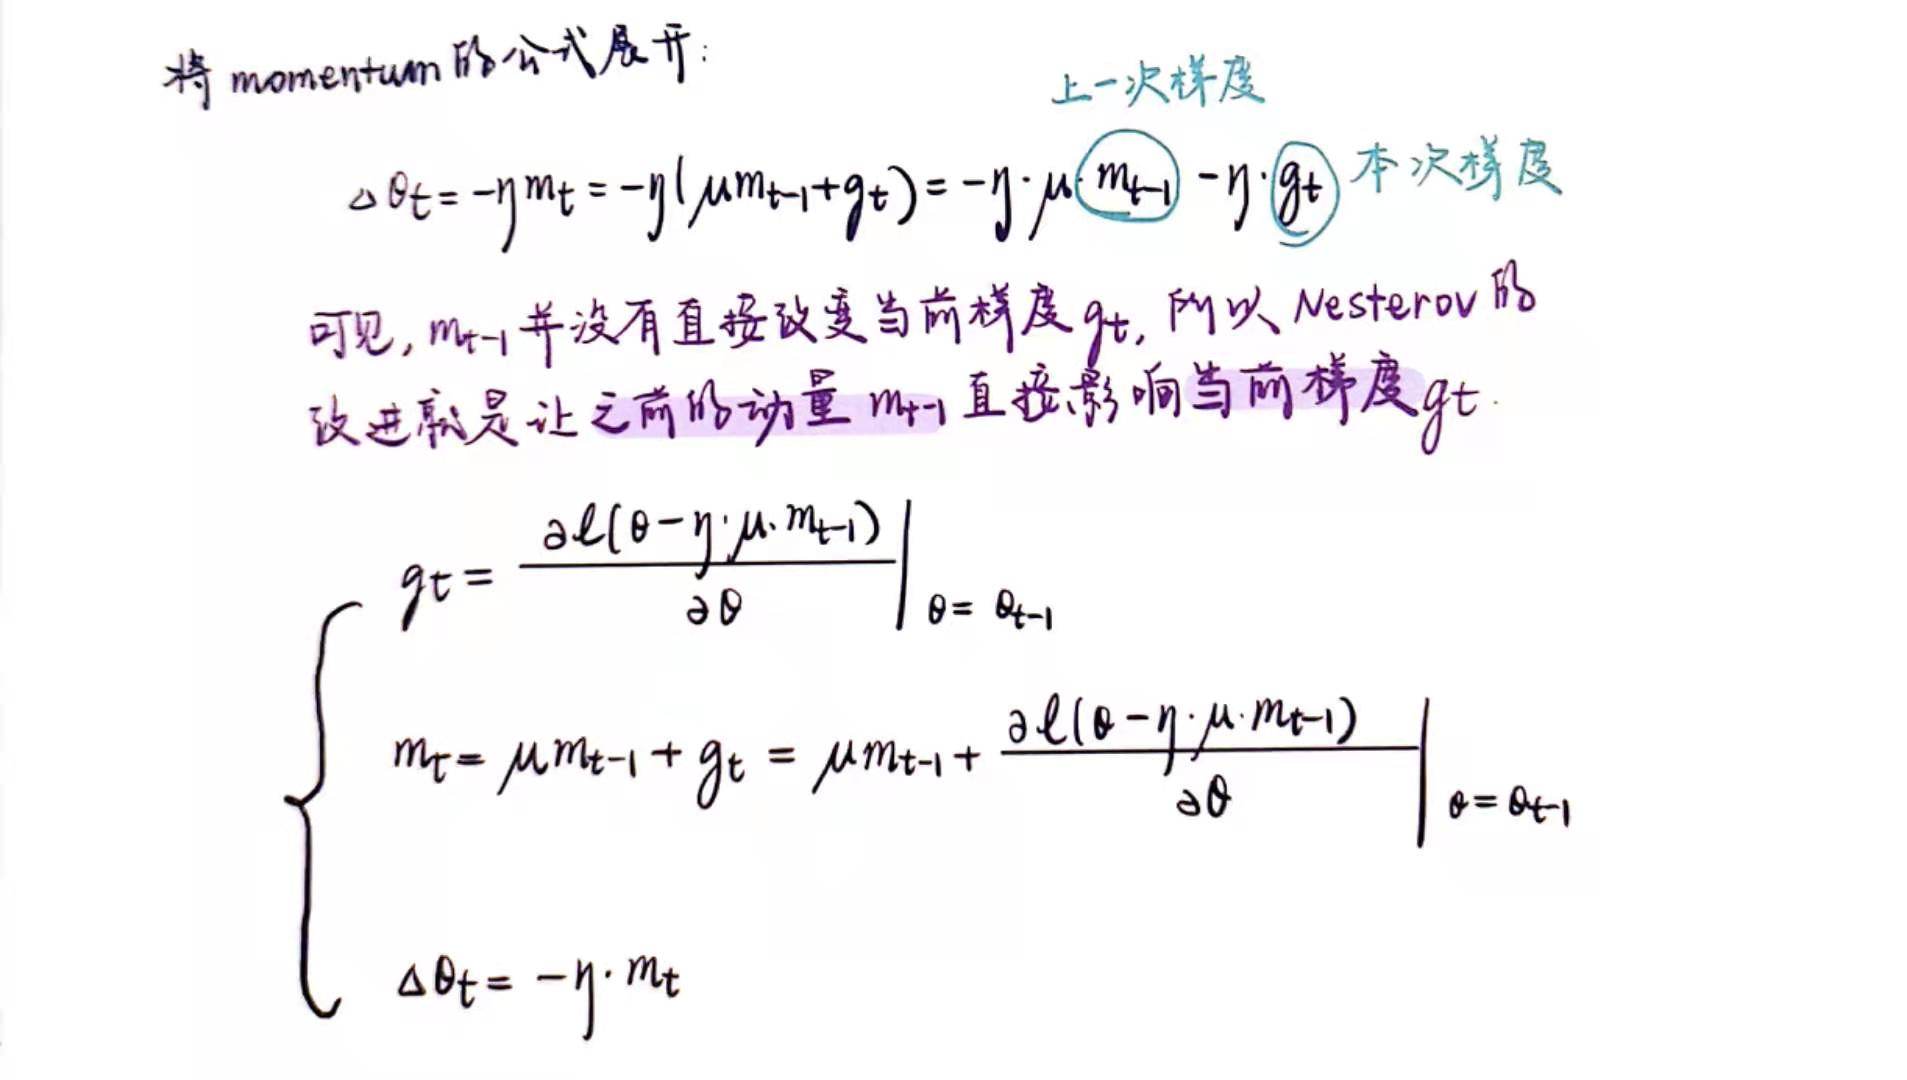 将momentum的公式展开:
上一次梯度
△θt = -ηmt = -η(μmt-1+gt) = -η·μ·mt-1 -η·gt 本次梯度
可见, mt-1并没有直接改变当前梯度gt, 所以Nesterov的
改进就是让之前的动量mt-1直接影响当前梯度gt.
gt = ∂ℓ(θ-η·μ·mt-1) / ∂θ | θ=θt-1
mt = μmt-1 + gt = μmt-1 + ∂ℓ(θ-η·μ·mt-1) / ∂θ | θ=θt-1
Δθt = -η·mt